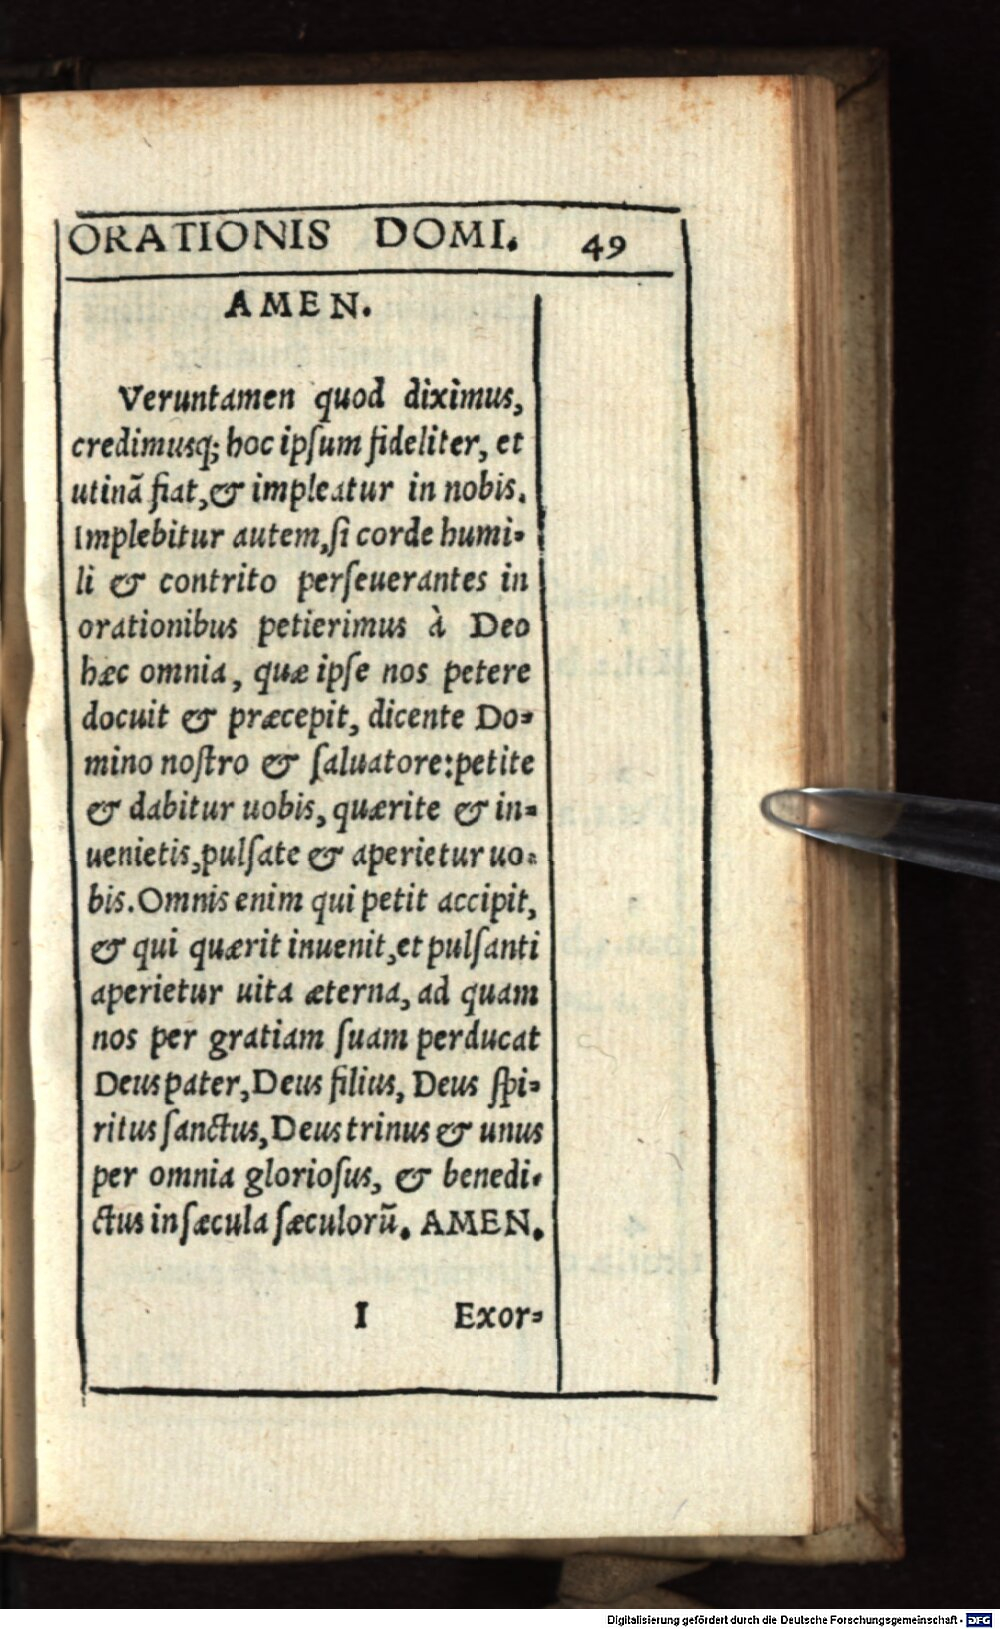 ORATIONIS DOMI. 49
AMEN.
Veruntamen quod diximus,
credimusq; hoc ipſum fideliter, et
utinã fiat, & impleatur in nobis.
Implebitur autem, ſi corde humi-
li & contrito perſeuerantes in
orationibus petierimus à Deo
hæc omnia, quæ ipſe nos petere
docuit & præcepit, dicente Do-
mino noſtro & ſaluatore: petite
& dabitur uobis, quærite & in-
uenietis, pulſate & aperietur uo-
bis. Omnis enim qui petit accipit,
& qui quærit inuenit, et pulſanti
aperietur uita æterna, ad quam
nos per gratiam ſuam perducat
Deus pater, Deus filius, Deus ſpi-
ritus ſanctus, Deus trinus & unus
per omnia glorioſus, & benedi-
ctus in ſæcula ſæculorũ. AMEN.
I Exor-
Digitalisierung gefördert durch die Deutsche Forschungsgemeinschaft - DFG